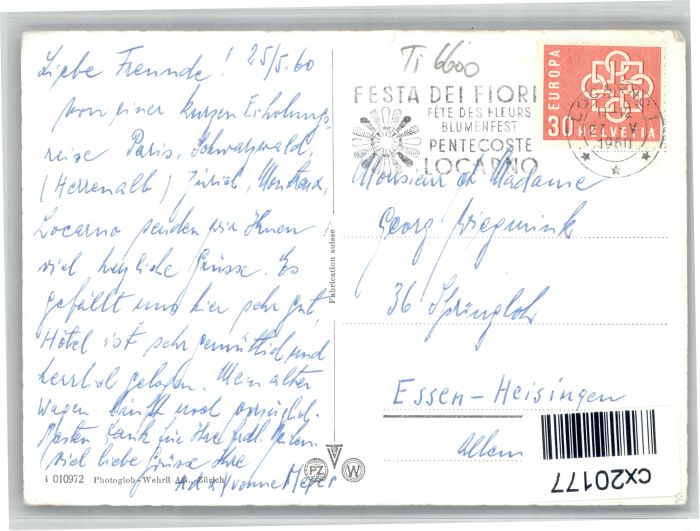 Liebe Freunde! 25/5.60
von einer kurzen Erholungs-
reise Paris, Schwarzwald,
(Herrenalb) Zürich, Montreux,
Locarno senden wir Ihnen
viel herzliche Grüsse. Es
gefällt uns hier sehr gut,
Hôtel ist sehr gemütlich und
herrlich gelegen. Mein alter
Wagen läuft noch vorzüglich.
Besten Dank für Ihre
viel liebe Grüsse Ihre
Yvonne Meyer
i 010972 Photoglob-Wehrli A.G., Zürich
Fabrication suisse
PZ W
Ti 6600
FESTA DEI FIORI
FÊTE DES FLEURS
BLUMENFEST
PENTECOSTE
LOCARNO
EUROPA
30 HELVETIA
1960
Monsieur et Madame
Georg Wiegmink
36 Springloh
Essen-Heisingen
Allem
cx20177